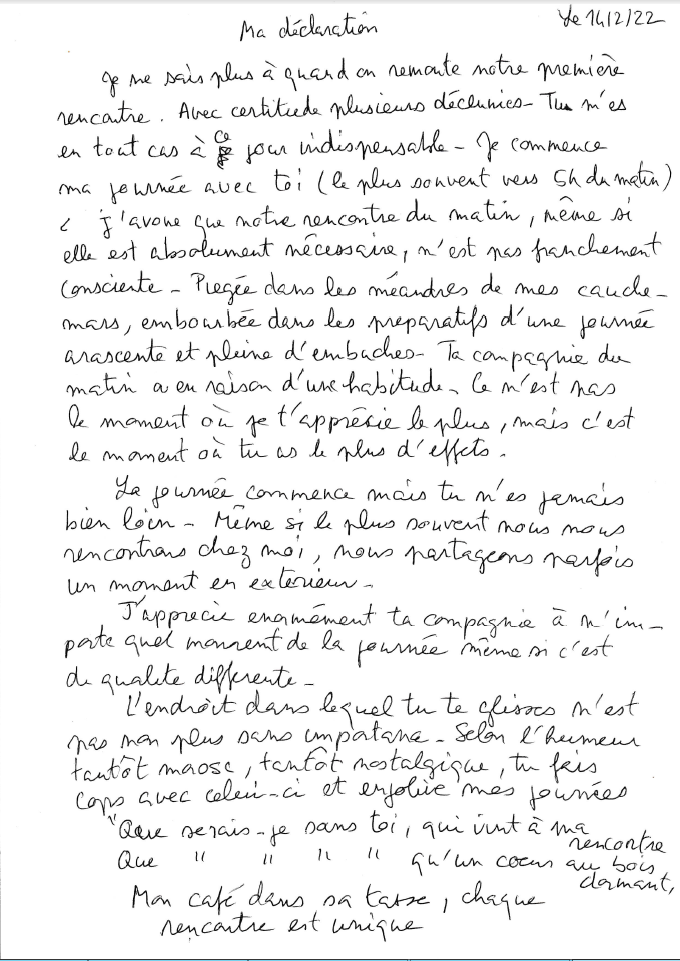 Le 14/2/22
Ma déclaration
Je ne sais plus à quand on remonte notre première
rencontre. Avec certitude plusieurs décennies - Tu m'es
en tout cas à ce jour indispensable - Je commence
ma journée avec toi (le plus souvent vers 5h du matin)
J'avoue que notre rencontre du matin, même si
elle est absolument nécessaire, n'est pas franchement
consciente - Piegée dans les méandres de mes cauche-
mars, embourbée dans les préparatifs d'une journée
arascente et pleine d'embuches - Ta compagnie du
matin a en raison d'une habitude - Ce n'est pas
le moment où je t'apprécie le plus, mais c'est
le moment où tu as le plus d'effets.
La journée commence mais tu n'es jamais
bien loin - Même si le plus souvent nous nous
rencontrons chez moi, nous partageons parfois
un moment en extérieur -
J'apprecie enormément ta compagnie à n'im-
porte quel moment de la journée même si c'est
de qualite differente -
L'endroit dans lequel tu te glisses n'est
pas non plus sans importance - Selon l'humeur
tantôt morose, tantôt nostalgique, tu fais
corps avec celui-ci et enjolive mes journées
"Que serais-je sans toi, qui vint à ma rencontre
Que " " " " qu'un coeur au bois dormant,
Mon café dans sa tasse, chaque
rencontre est unique